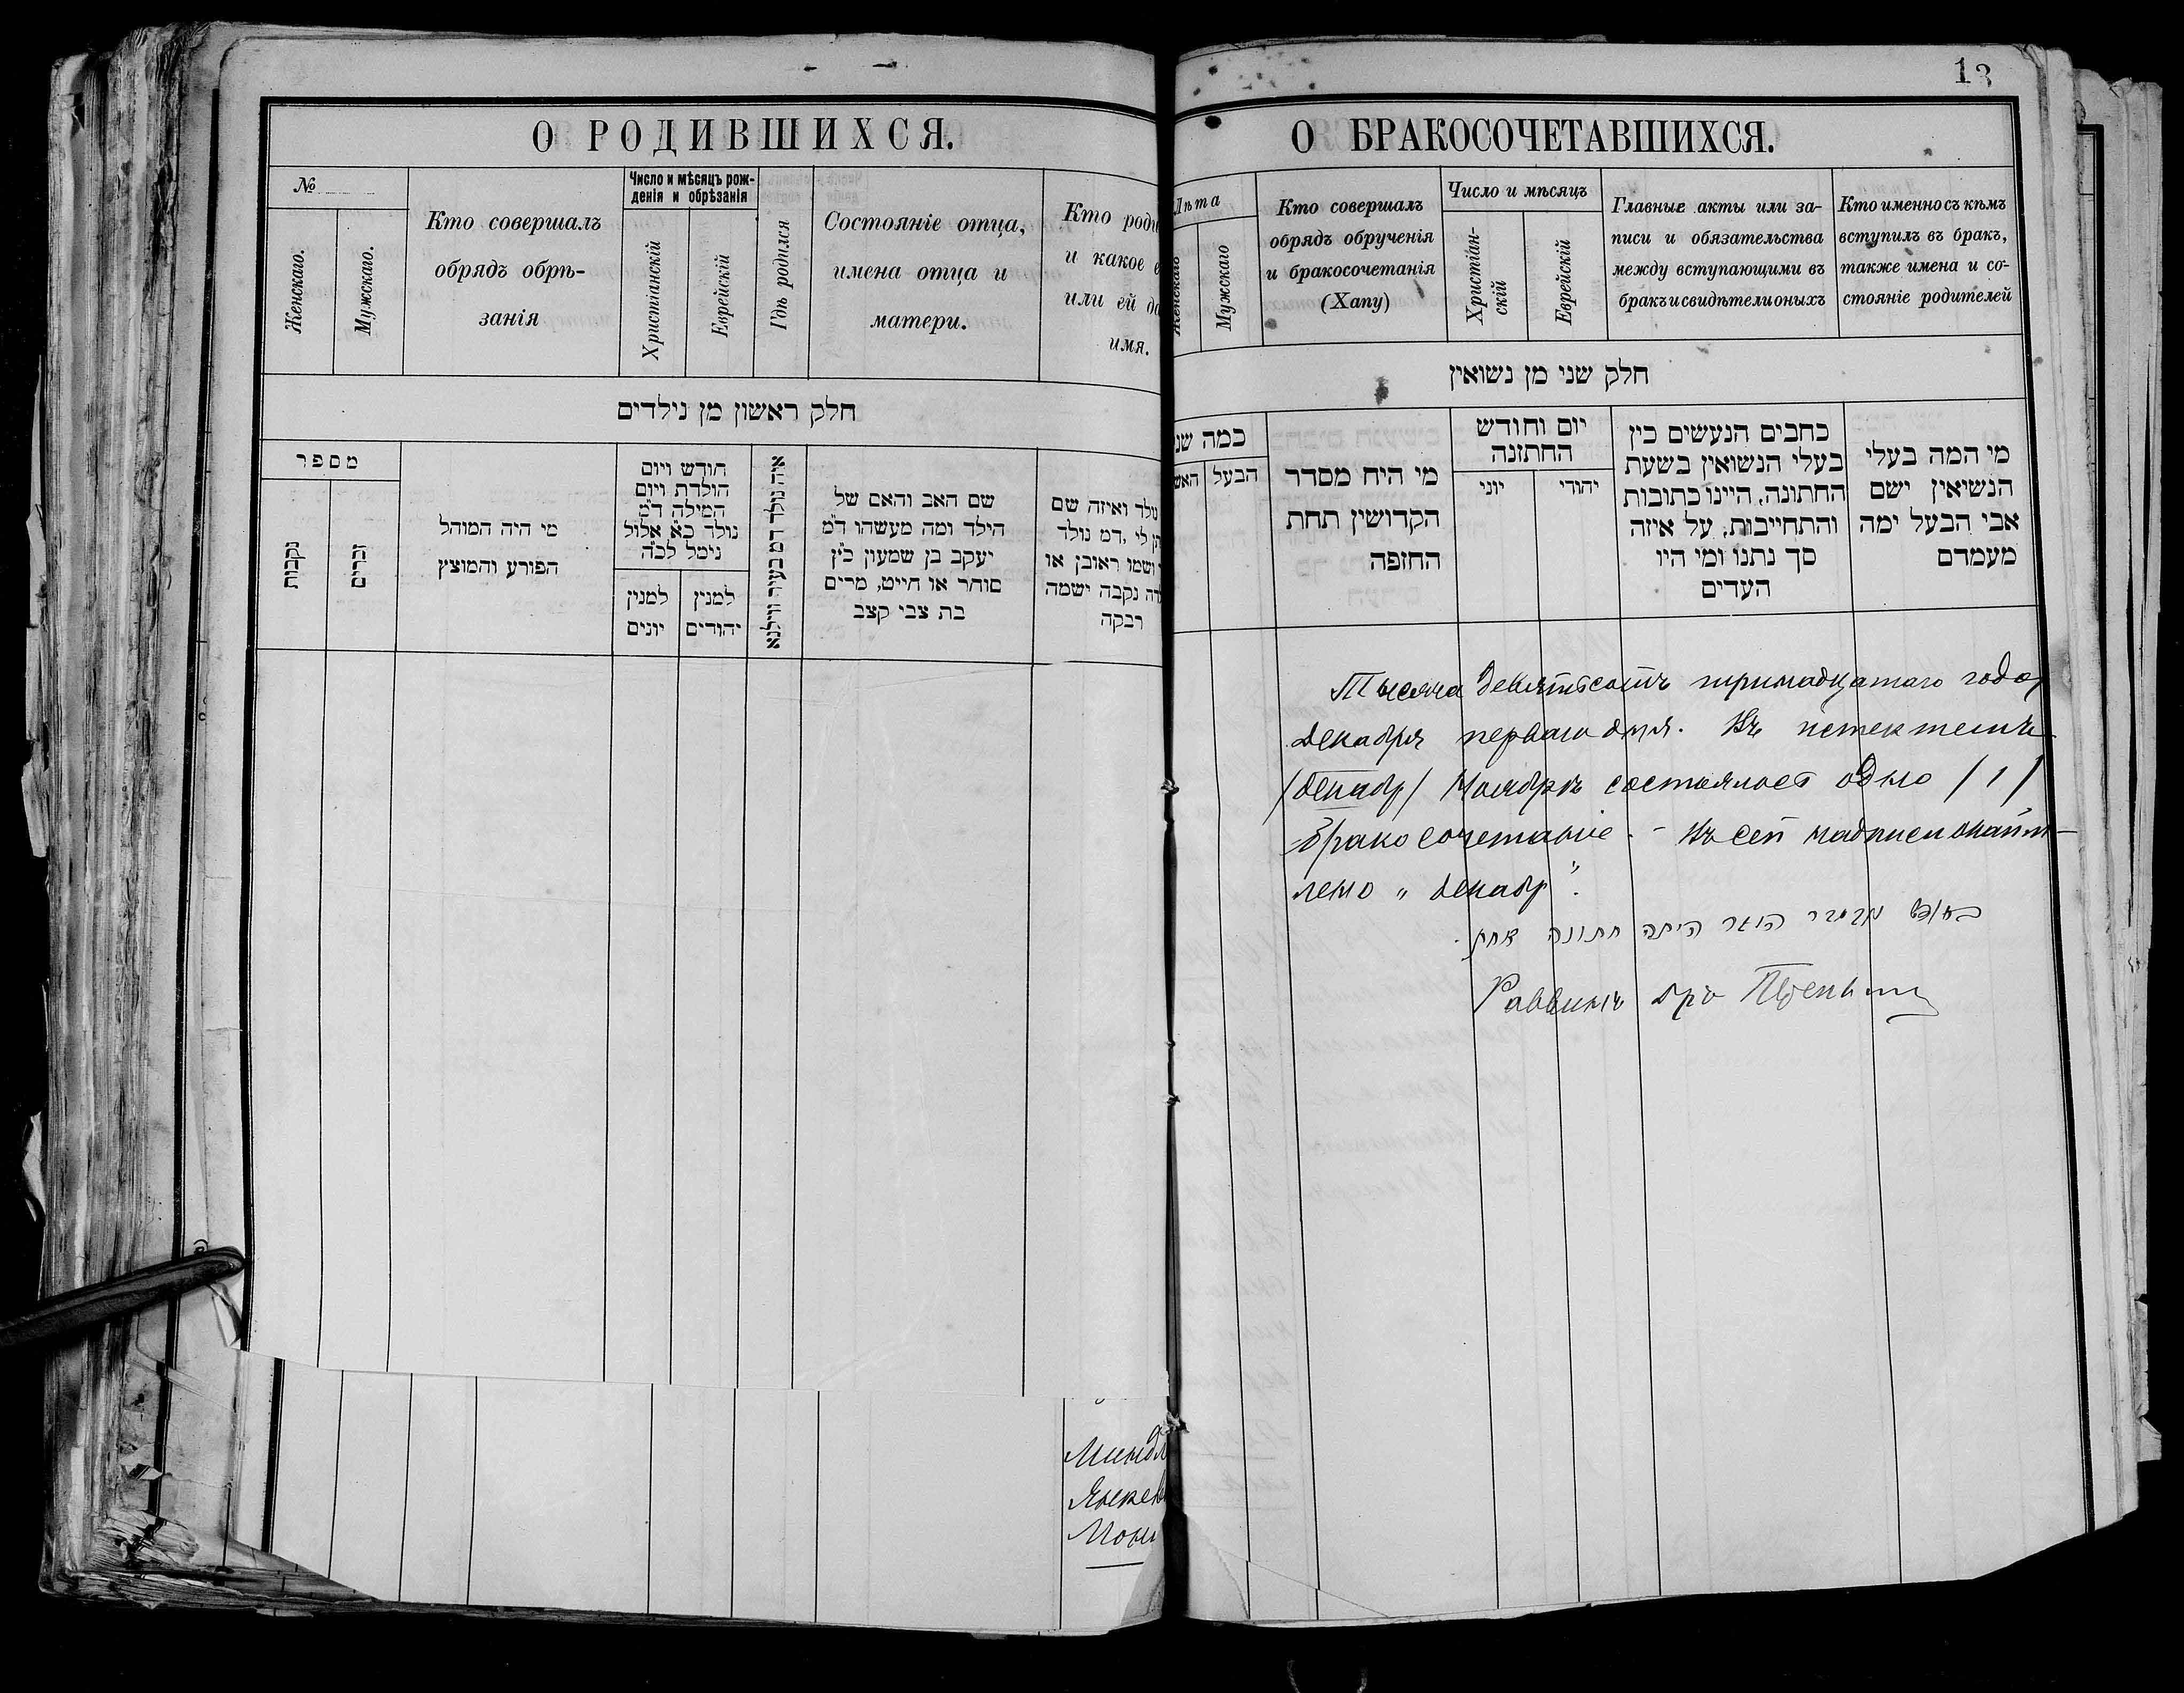 О РОДИВШИХСЯ.
№
Женскаго.
Мужскаго.
Кто совершалъ
обрядъ обрѣ-
занія
Число и мѣсяцъ рож-
денія и обрѣзанія
Христіанскій
Еврейскій
Гдѣ родился
Состояніе отца,
имена отца и
матери.
Кто роди
и какое е
или ей да
имя.
חלק ראשון מן נילדים
מספר
נקבות
זכרים
מי היה המוהל
הפורע והמוצץ
חודש ויום
הולדת ויום
המילה ד״מ
נולד כ״א אלול
נימל לכ״ה
למנין
יהודים
למנין
יונים
איה נולד דמ בעיר ווילנא
שם האב והאם של
הילד ומה מעשהו ד״מ
יעקב בן שמעון כ״ץ
סוחר או חייט, מרים
בת צבי קצב
נולד ואיזה שם
תן לי, דמ נולד
ושמו ראובן או
דה נקבה ישמה
רבקה
Минд
Мов
13
О БРАКОСОЧЕТАВШИХСЯ.
Лѣта
Женскаго
Мужскаго
Кто совершалъ
обрядъ обрученія
и бракосочетанія
(Хапу)
Число и мѣсяцъ
Христіан-
скій
Еврейскій
Главные акты или за-
писи и обязательства
между вступающими въ
бракъ и свидѣтели оныхъ
Кто именно съ кѣмъ
вступилъ въ бракъ,
также имена и со-
стояніе родителей
חלק שני מן נשואין
כמה שנ
הבעל
האש
מי היח מסדר
הקדושין תחת
החזפה
יום וחודש
החתזנה
יהודי
יוני
כחבים הנעשים כין
בעלי הנשואין בשעת
החתונה, היינו כתובות
והתחייבות, על איזה
סך נתנו ומי היו
העדים
מי המה בעלי
הנשיאין ישם
אבי הבעל ימה
מעמדם
Тысяча девятьсотъ тринадцатаго года
Декабря перваго дня. Въ истекшемъ
/декабр/ Ноябрѣ состоялось одно /1/
бракосочетаніе. - Въ сей надписи окайм-
лено „декабр".
היתה חתונה אחת.
Раввинъ